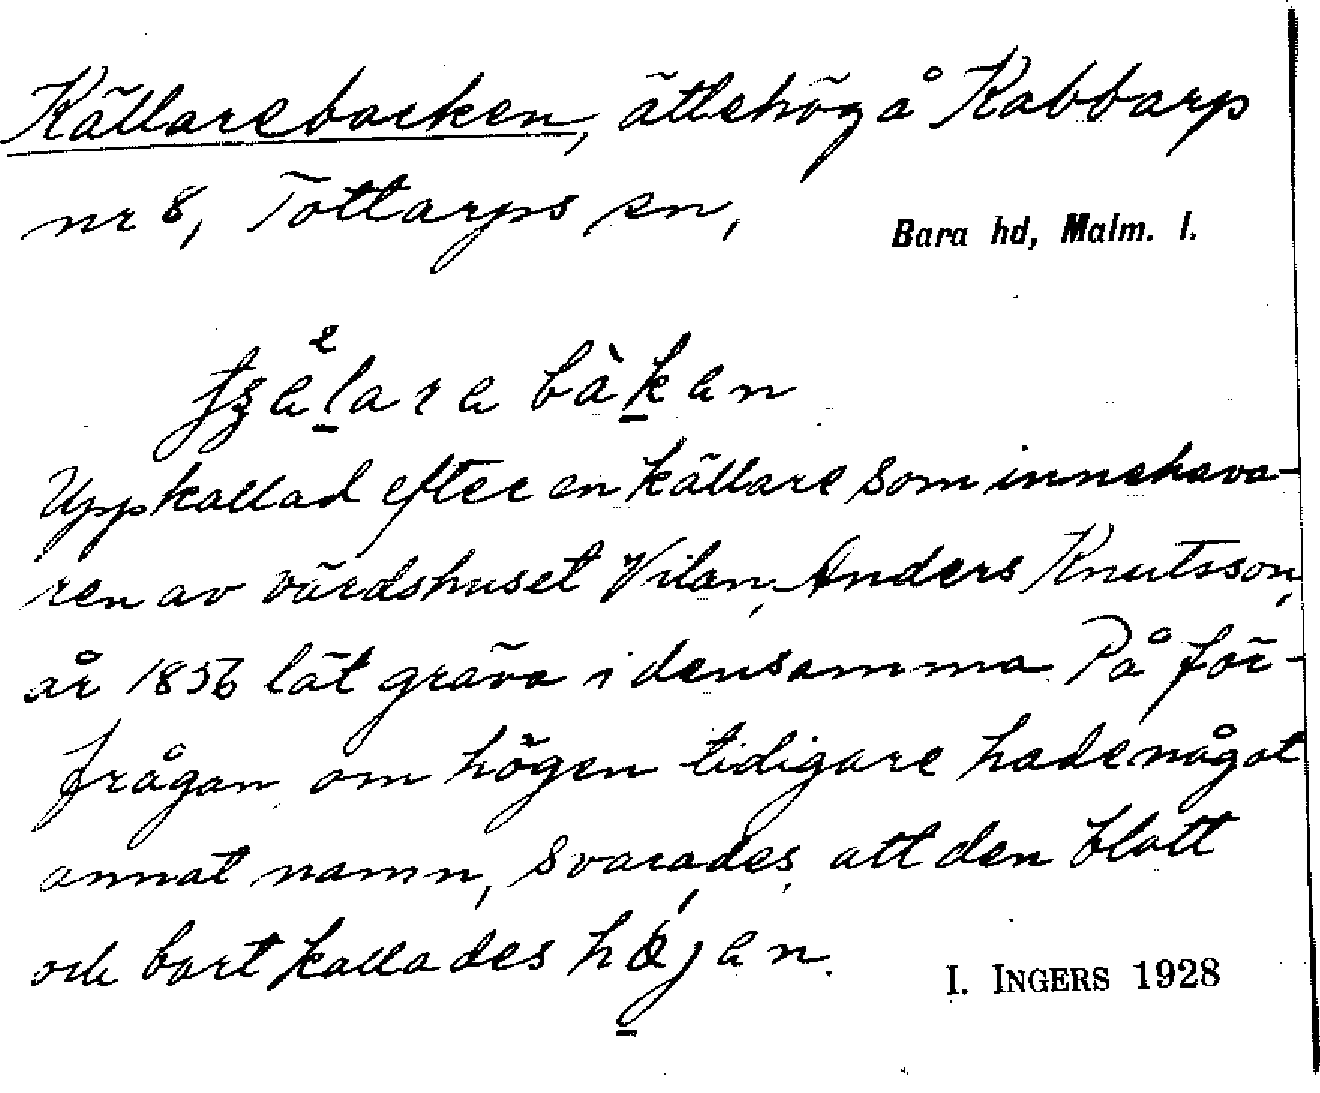 Källarebacken, ättehög å Kabbarp
nr 8, Tottarps sn,
Bara hd, Malm. l.
Uppkallad efter en källare som innehava-
ren av värdshuset Vilan, Anders Knutsson,
år 1856 lät gräva i densamma. På för-
frågan om högen tidigare hade något
annat namn, svarades, att den blott
och bart kallades
I. INGERS 1928